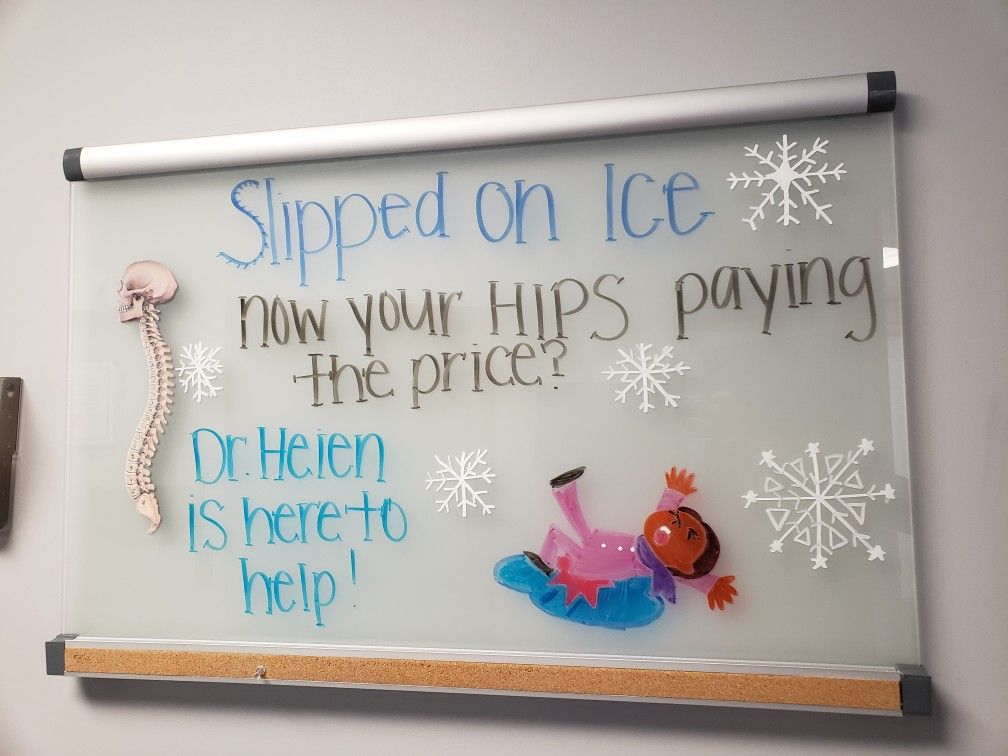 Slipped on Ice
now your HIPS paying
the price?
Dr. Heien
is here to
help!